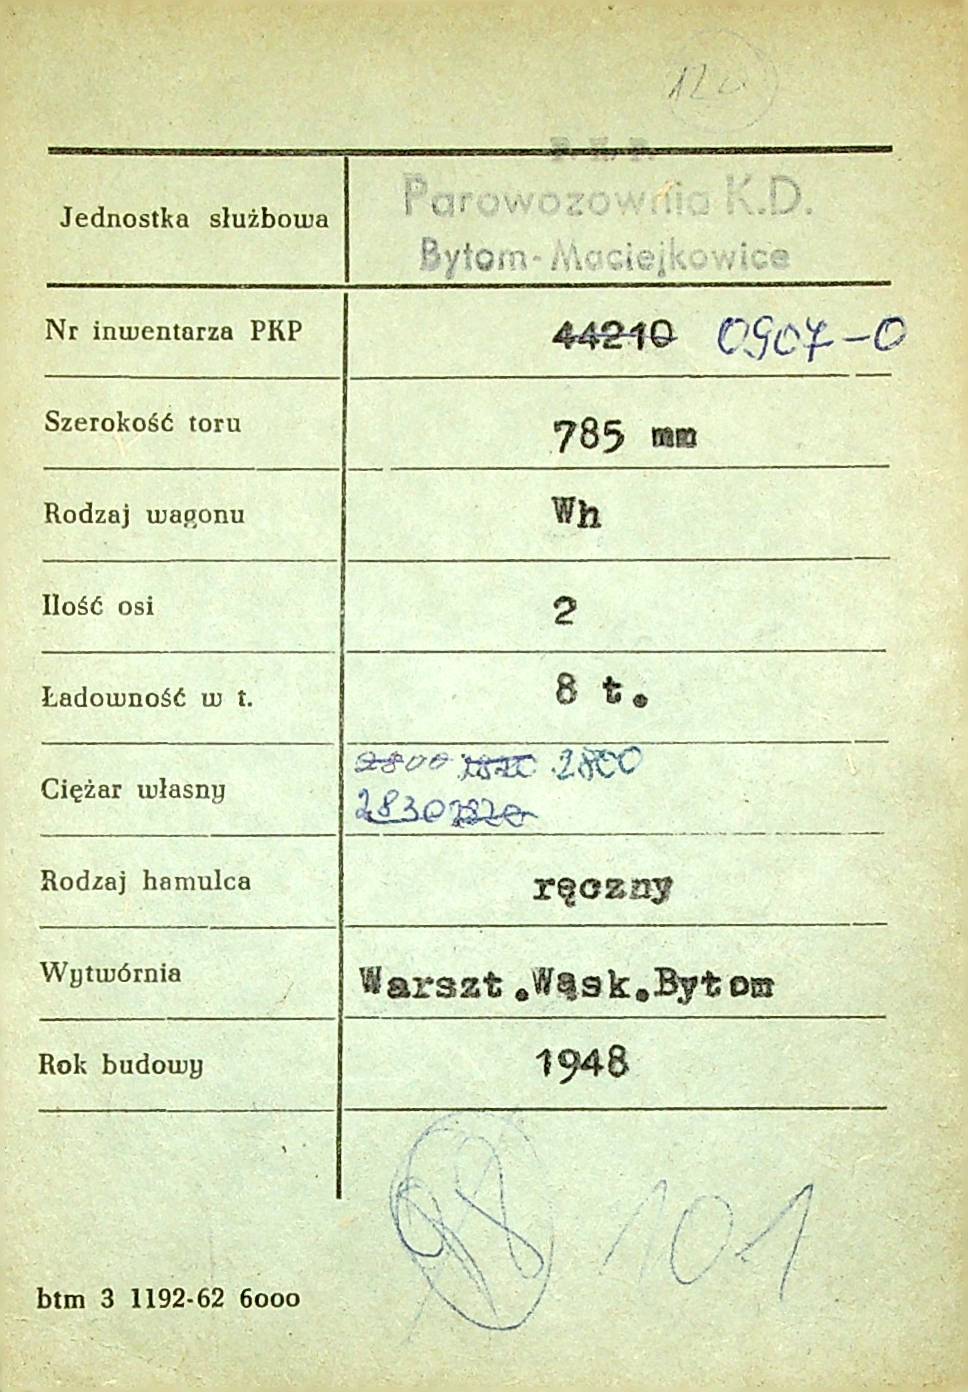 P. K. P.
Parowozownia K.D.
Jednostka służbowa
Bytom-Maciejkowice
Nr inwentarza PKP 44210 0907-0
Szerokość toru 785 mm
Rodzaj wagonu Wh
Ilość osi 2
Ładowność w t. 8 t.
2800 2800
Ciężar własny
2830
Rodzaj hamulca ręczny
Wytwórnia Warszt.Wąsk.Bytom
Rok budowy 1948
98 101
btm 3 1192-62 6000